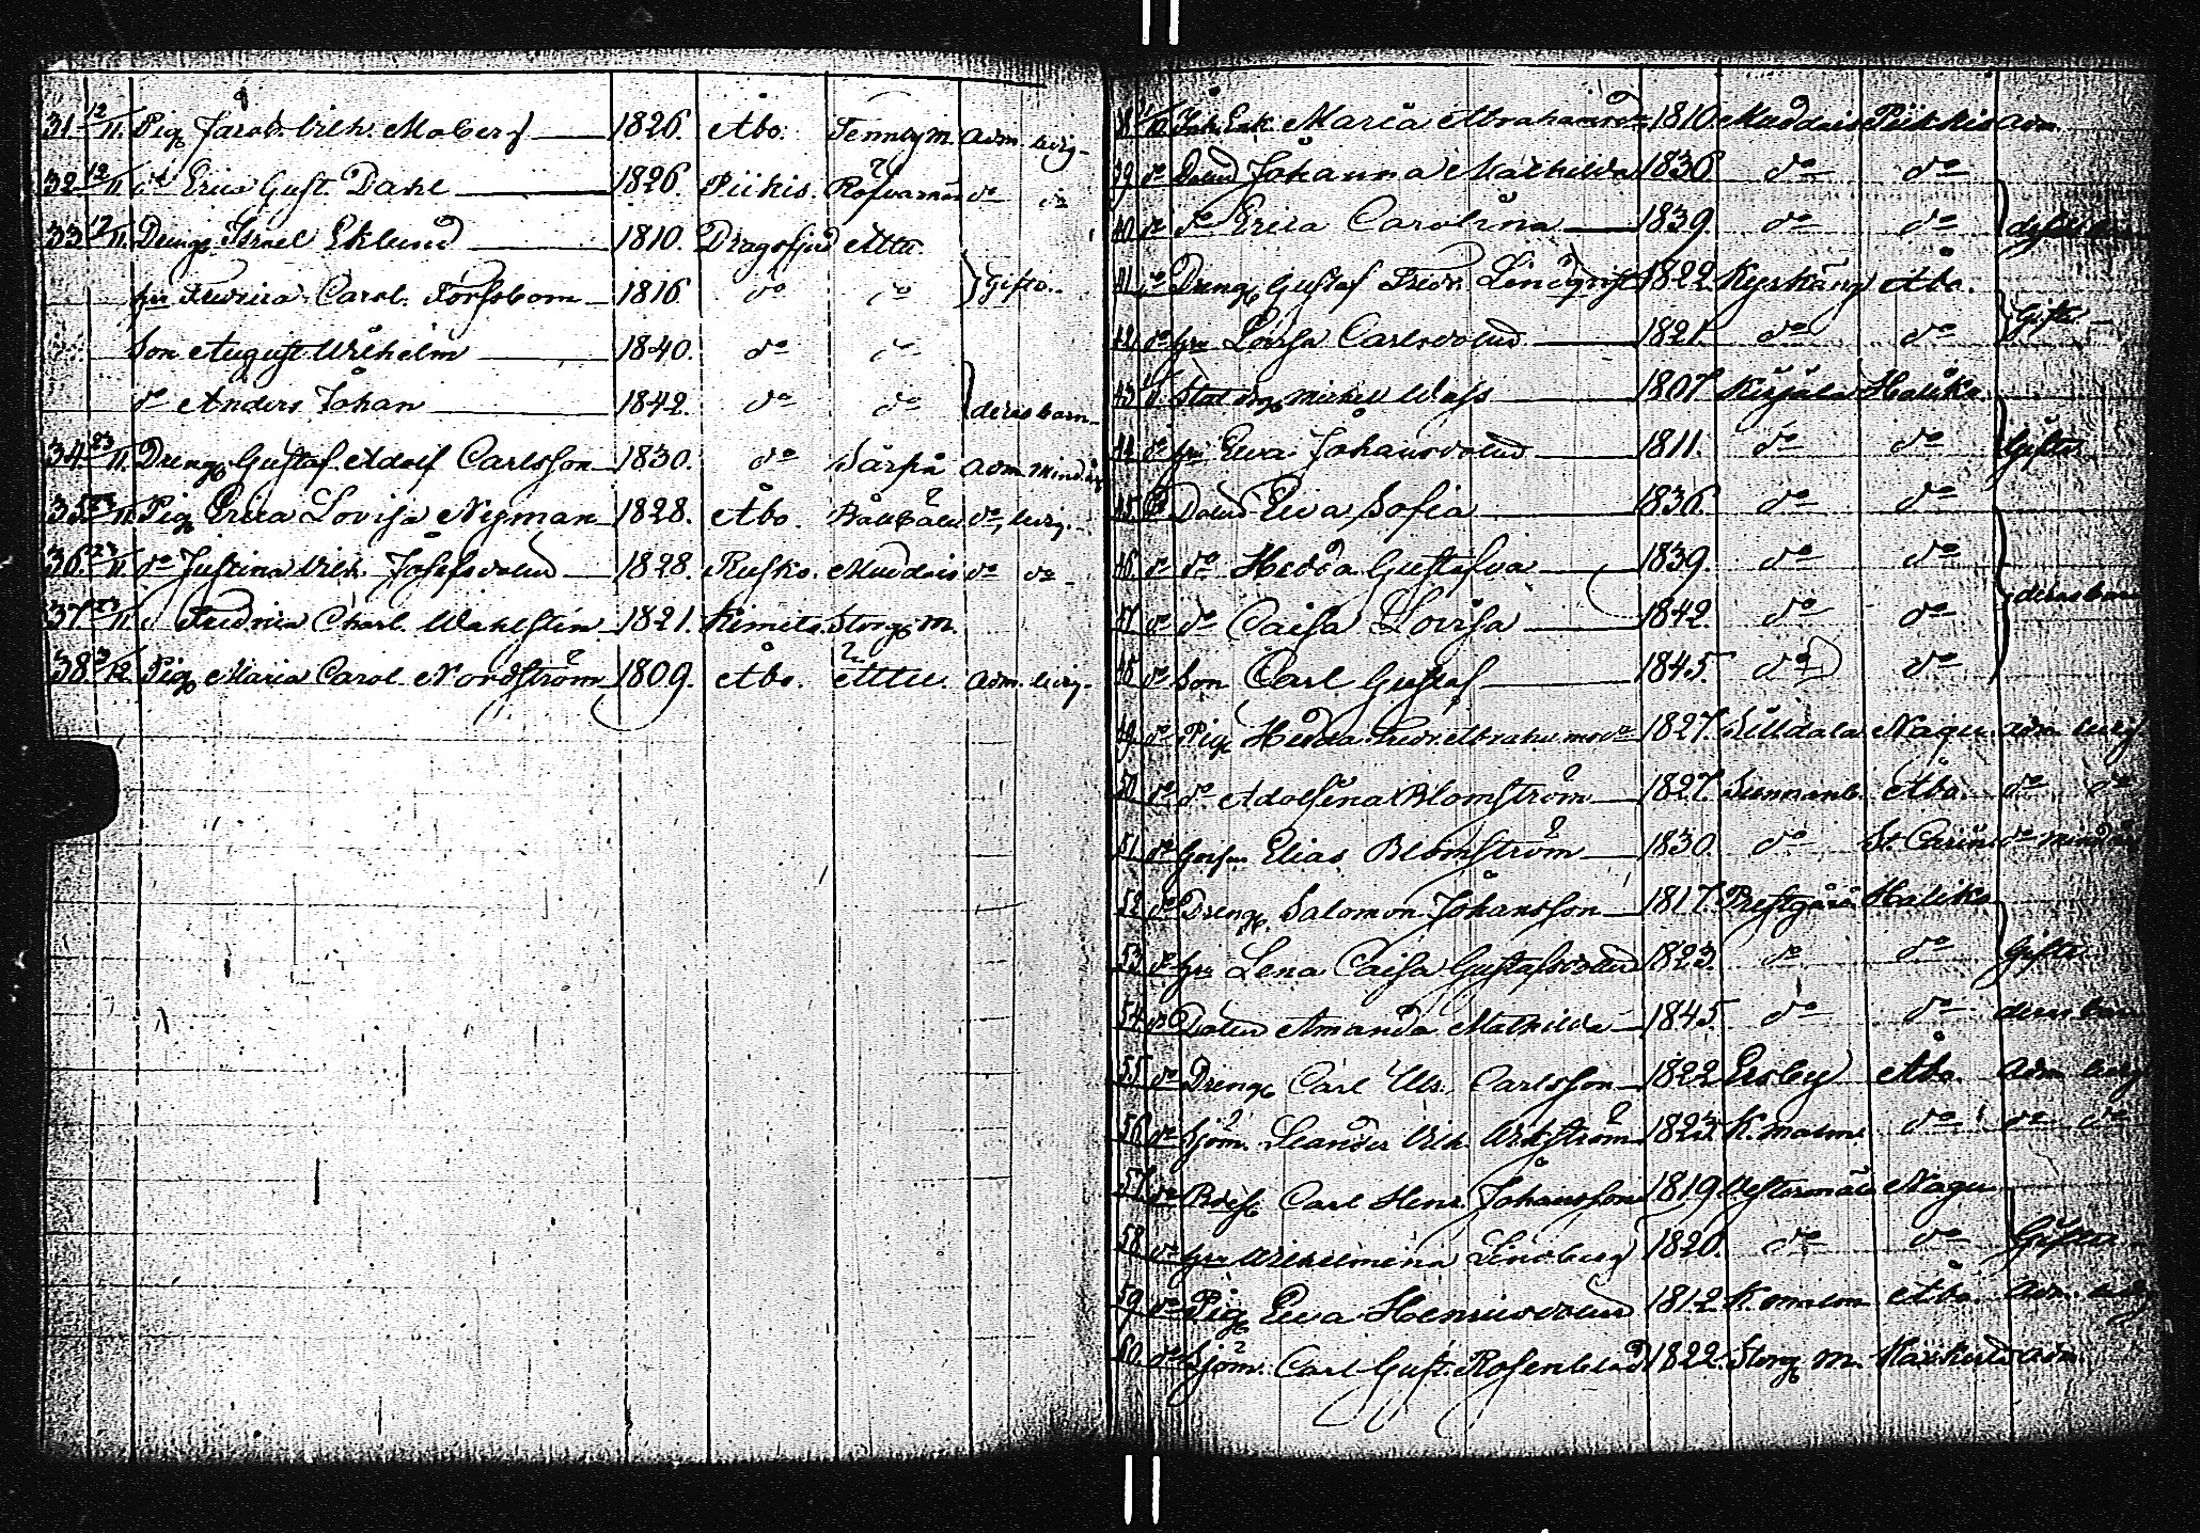 31. 12/11. Pig. Jacob. Vilh. Moberg 1826. Åbo. Tennby m. adm. led.
32 12/11 do Erica Gust. Dahl 1826. Piikis. do do
33 12/11. Dreng Israel Eklund 1810. Dragsfjerd Attu.
hu Fredrica Carol. Forsbom 1816 do do Gifta.
Son August Wilhelm 1840. do do
do Anders Johan 1842. do do deras barn
34. 23/11. Dreng Gustaf Adolf Carlsson 1830. do Särpå adm. mind.
35. 23/11 Pig Erica Lovisa Nyman 1828. Åbo. do, ledig.
36. 23/11. do Justina Vilh. Josefsdoter 1828. Rusko. Muddais do do
37 23/11 d Fredrica Charl. Wahlsten 1821. Kimito. Storg m.
38 3/12. Pig Maria Carol. Nordström 1809. Åbo. Attu. adm. ledig.
Enk. Maria Abrahamsd 1810 Muddais Piikkis adm.
39 do Doter Johanna Mathilda 1836 do do
40. do do Erica Carolina 1839. do do
41 do Dreng Gustaf Fredr. Lindqvist 1822. Kyrkäng Åbo.
42. do hu Lovisa Carlsdoter 1821. do do Gifta
43 Stat drg Mickel Wass 1807 Kirjala Haliko
44 do hu Eva Johansdoter 1811. do do Gifta.
45 do Doter Eva Sofia 1836. do do
46. do do Hedda Gustafva 1839. do do
47 do do Caisa Lovisa 1842 do do deras barn
48 do Son Carl Gustaf 1845. do do
49. do Pig Hedda Fredr. Abrahamsdo 1827. Lilldala Nagu. adm. ledig.
50 do do Adolfina Blomström 1827. Åbo. do do
51 do Gosse Elias Blomström 1830. do St. Carins do mind.
52 do Dreng Salomon Johansson 1817. Prestgård Haliko
53 do hu Lena Caisa Gustafsdoter 1823. do do Gifta
54 do Doter Amanda Mathilda 1845. do do deras barn
55 do Dreng Carl Ulr. Carlsson 1822 Lesby Åbo. adm. ledig
56 do Sjöm. Leander Vilh. Wikström 1823. K. malm do do do
57 do Carl Henr. Johansson 1819 Nagu
58 do hu Wilhelmina Lindberg 1820. do do Gifta
59 do Pig Eva Henricsdoter 1812 Åbo. adm.
60. do Sjöm. Carl Gust. Rosenblad 1822. Storg m. adm.